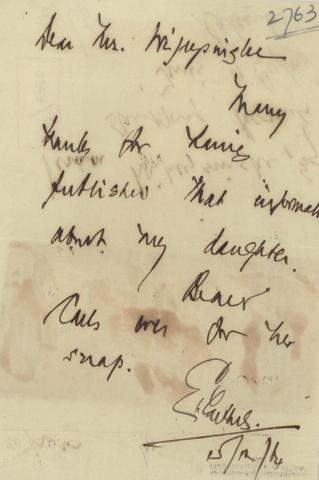 2763
Dear Mr. Wijesinghe
Many
thanks for having
published that informat
about my daughter.
Bearer
Calls over for her
snap.